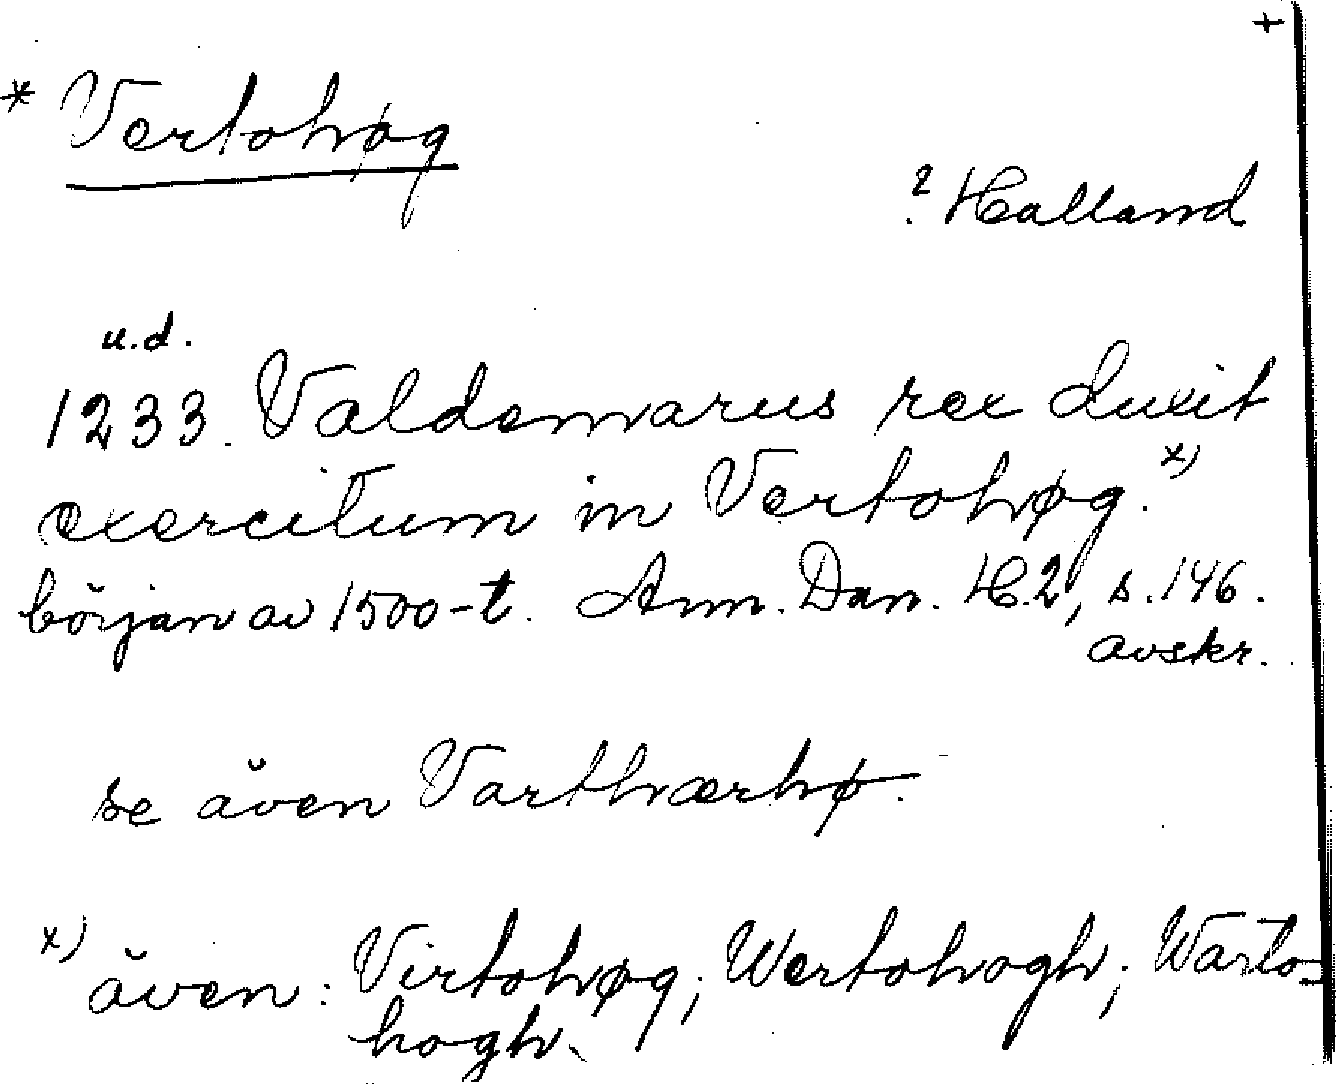 +
* Vertohøg
? Halland
u.d.
1233. Valdemarus rex duxit
exercitum in Vertohøg.x)
början av 1500-t. Ann. Dan. H.2, s.146.
avskr.
se även Varthærhø.
x) även: Virtohøg; Wertohogh; Warto-
hogh.